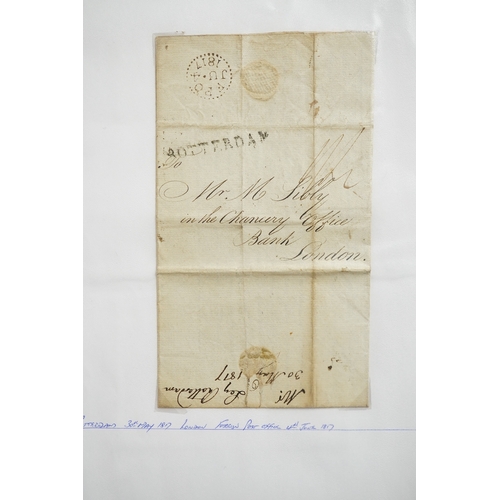 1817
ROTTERDAM
To
Mr. M Sibly
in the Chancery Office
Bank
London.
Mr.
30 May
1817
Rotterdam
30th May 1817 London Foreign Post Office 4th June 1817